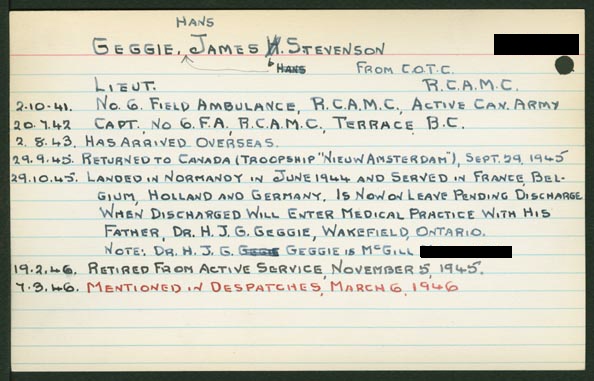 HANS
GEGGIE, JAMES H. STEVENSON
HANS FROM C.O.T.C.
LIEUT. R.C.A.M.C.
2.10.41. NO. 6. FIELD AMBULANCE, R.C.A.M.C., ACTIVE CAN. ARMY
20.7.42 CAPT., NO 6.F.A., R.C.A.M.C., TERRACE, B.C.
2.8.43. HAS ARRIVED OVERSEAS.
29.9.45. RETURNED TO CANADA (TROOPSHIP "NIEUW AMSTERDAM"), SEPT. 29, 1945
29.10.45. LANDED IN NORMANDY IN JUNE 1944 AND SERVED IN FRANCE, BEL-
GIUM, HOLLAND AND GERMANY. IS NOW ON LEAVE PENDING DISCHARGE
WHEN DISCHARGED WILL ENTER MEDICAL PRACTICE WITH HIS
FATHER, DR. H. J. G. GEGGIE, WAKEFIELD, ONTARIO.
NOTE: DR. H. J. G. GEGGIE IS MCGILL
19.2.46. RETIRED FROM ACTIVE SERVICE, NOVEMBER 5, 1945.
7.3.46. MENTIONED IN DESPATCHES, MARCH 6, 1946